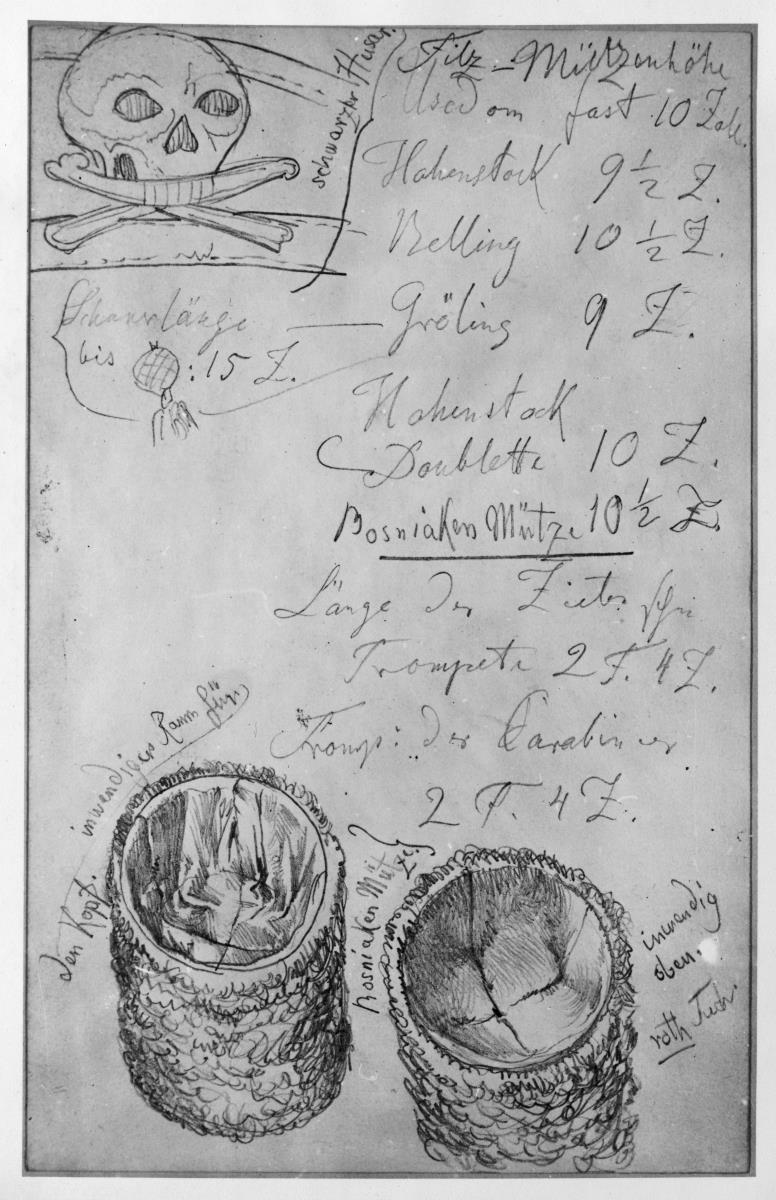 schwarzer Husar.
Filz-Mützenhöhe
Usedom fast 10 Zolle.
Hohenstock 9 ½ Z.
Belling 10 ½ Z.
Gröling 9 Z.
bis : 15 Z.
Hohenstock
Doublette 10 Z.
Bosniaken Mütze 10 ½ Z.
Länge der Zieten
Trompete 2 F. 4 Z.
Tromp: der Carabinier
2 F. 4 Z.
inwendiger Raum für
den Kopf.
Bosniaken Mütze.
inwendig
oben.
roth Tuch.